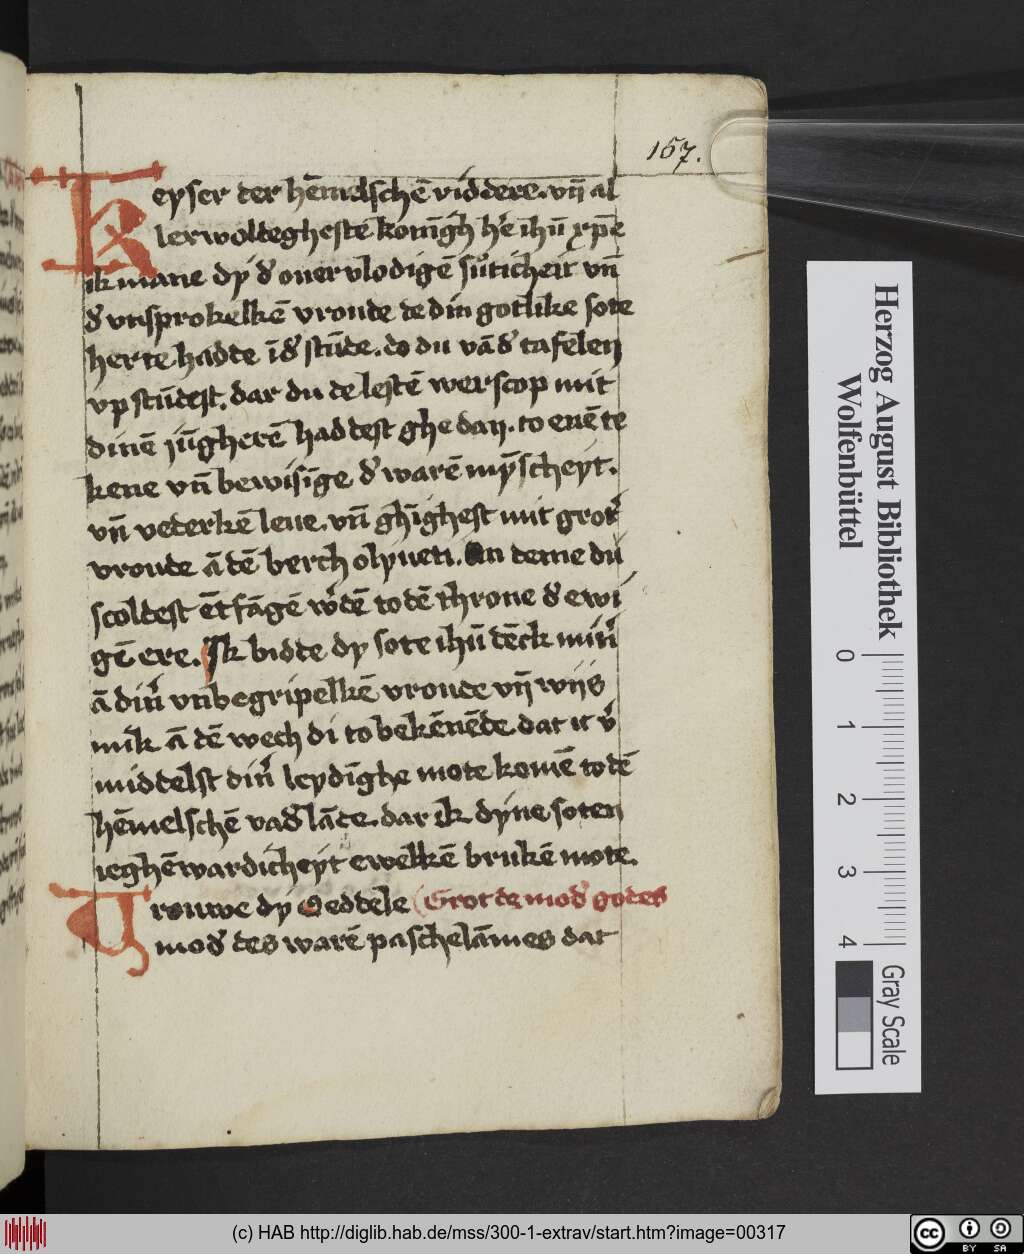 157.
Keyser der hēmelschē riddere. vn̄ al
lerwoldeghestē konīgh hˀe ihū xp̄e
ik mane dy dˀ ouer vlodigē sůticheit vn̄
dˀ vnsprokelkē vroude de din gotlike sote
herte hadde ī dˀ stūde. do du vā dˀ tafelen
vp stūdest. dar du de lestē werscop mit
dinē iūgherē haddest ghe dan. to enē te
kene vn̄ bewisīge dˀ warē mȳscheyt.
vn̄ vederkē leue. vn̄ ghīghest mit grotˀ
vroude ā dē berch olyueti. An deme du
scoldest ētfāgē wˀdē to dē throne dˀ ewi
gē ere. Ik bidde dy sote ihū dēck minˀ
ā dinˀ vnbegripelkē vroude vn̄ wijs
mik ā dē wech di to bekēnēde. dat ic vˀ
middelst dinˀ leydīghe mote komē to dē
hēmelschē vadˀ lāde. dar ik dyne soten
ieghēwardicheyt ewelkē brukē mote.
Vrouwe dy Oeddele Grot de modˀ godes
modˀ des warē paschelāmes dat
Herzog August Bibliothek
Wolfenbüttel
0 1 2 3 4
Gray Scale
(c) HAB http://diglib.hab.de/mss/300-1-extrav/start.htm?image=00317
cc BY SA